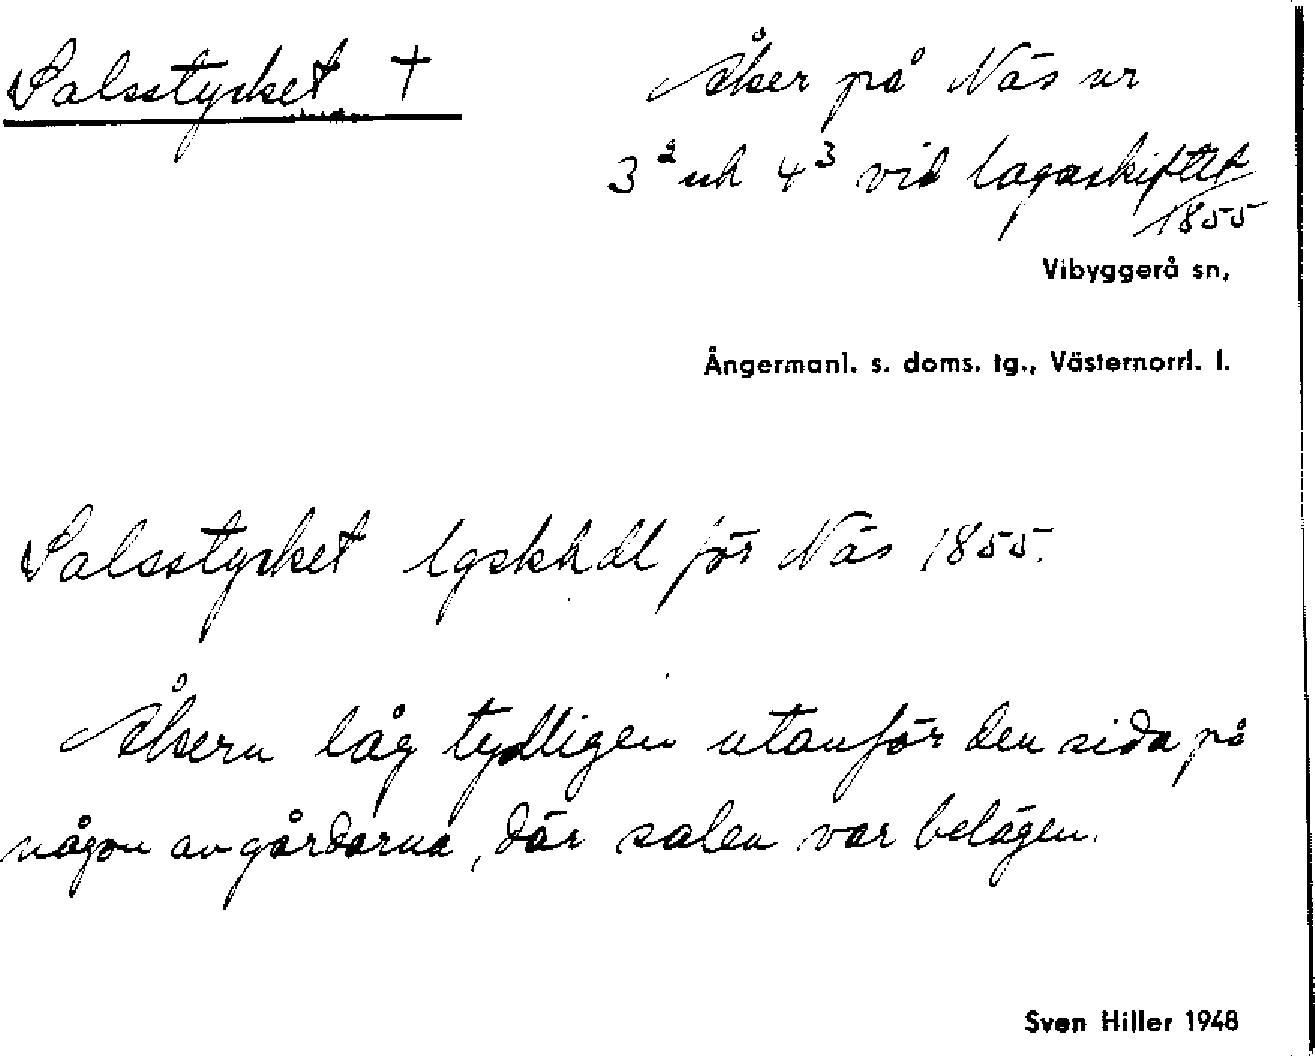 Salsstycket †
Åker på Näs nr
3² och 4³ vid lagaskiftet
1855
Vibyggerå sn,
Ångermanl. s. doms. tg., Västernorrl. l.
Salsstycket lgskhdl för Näs 1855.
Åkern låg tydligen utanför den sida på
någon av gårdarna, där salen var belägen.
Sven Hiller 1948